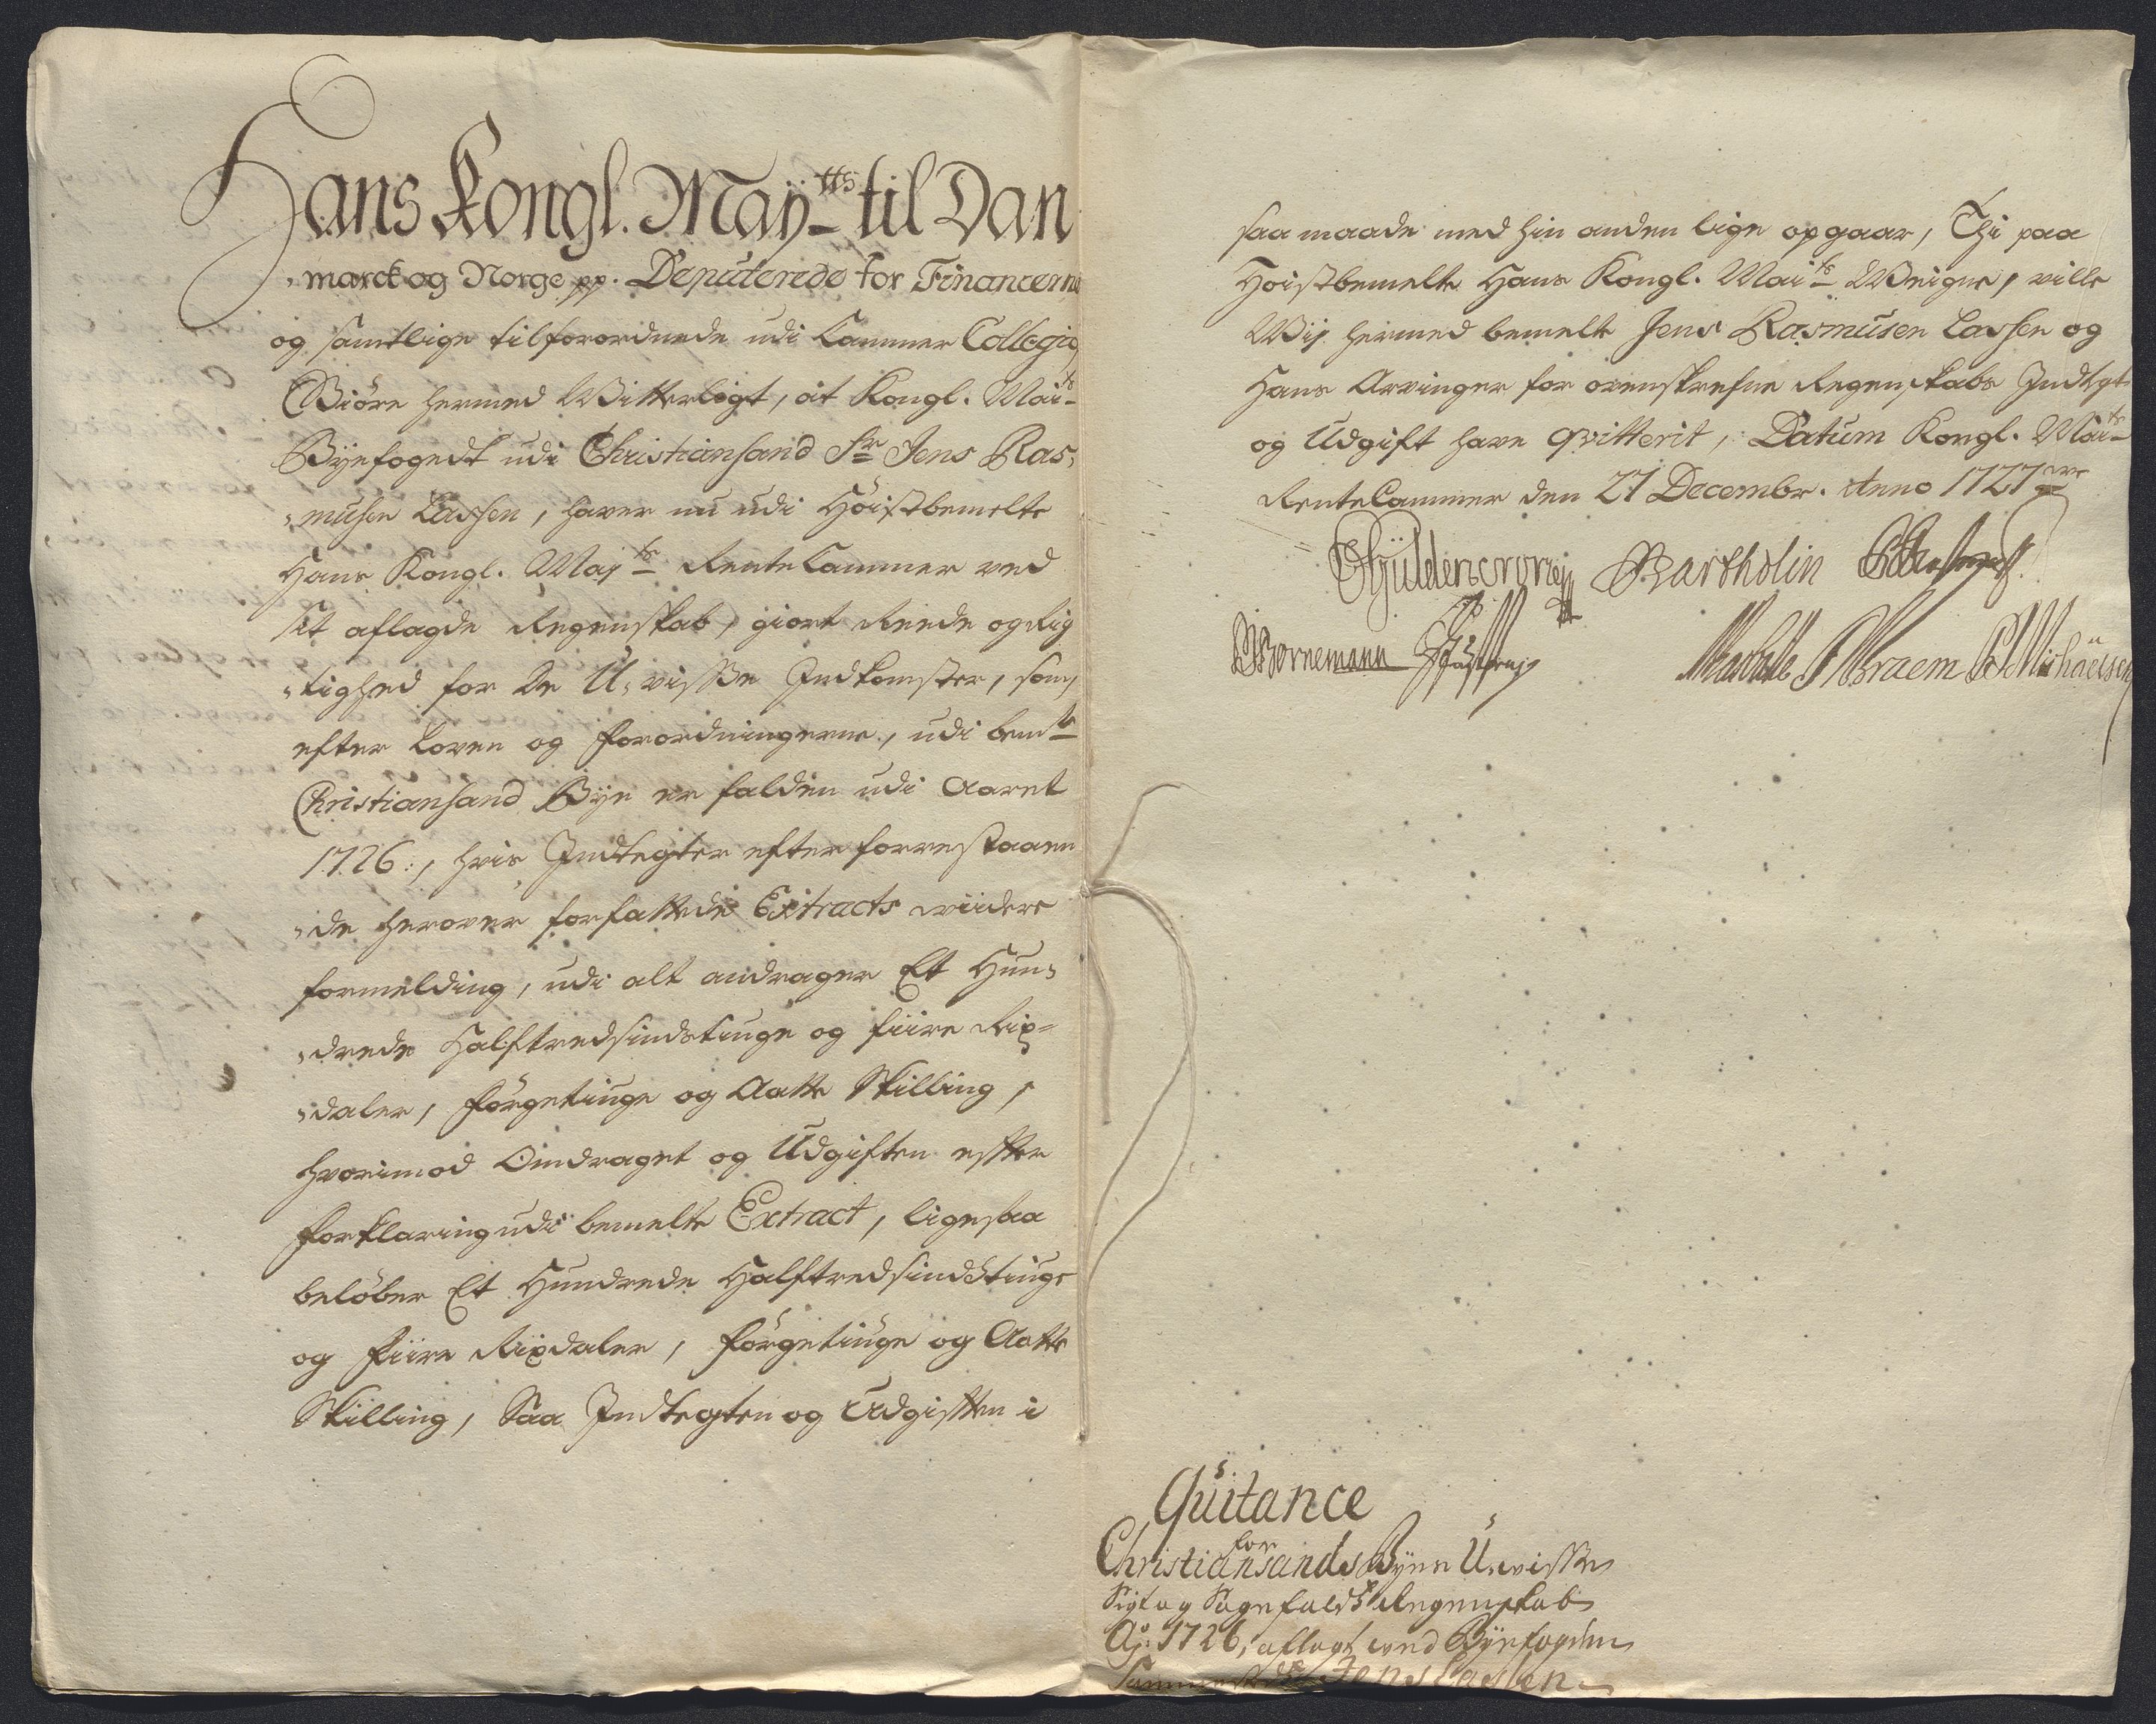 Hans Kongl. Maÿtts til Dan
„marck og Norge pp. Deputerede for Financerne
og samtlige tilforordnede udi Cammer Collegio
Giöre hermed Witterligt, at Kongl. Maits
Bÿefogedt udi Christiansand Sr Jens Ras„
„musen Lassen, haver nu udi Höistbemelte
Hans Kongl. Mayts RenteCammer ved
sit aflagde Regenskab, giort Reede og Rig
„tighed for de U„visse Indkomster, som
efter Loven og Forordningerne, udi bemte
Christiansand Bÿe er falden udi Aaret
1726:, hvis Indtegter efter forrestaaen
„de herover forfattede Extracts viidere
formelding, udi alt andrager Et Hun„
„drede Halftredsindstiuge og fiire Rix
„daler, förgetiuge og Aatte Skilling,
hvorimod Omdraget og Udgiften effter
forklaring udi bemelte Extract, ligesaa
belöber Et Hundrede Halftredsindstiuge
og fiire Rixdaler, förgetiuge og Aatte
Skilling, Saa Indtegten og Udgifften i
saa maade med hin anden lige opgaar, Thi paa
Höistbemelte Hans Kongl. Maits Weigne, ville
Wij hermed bemelte Jens Rasmusen Lassen og
Hans Arvinger for ovenskrefne Regenskabs Indtgt
og Udgift have qvitterit, Datum Kongl. Maits
RenteCammer den 27 Decembr. Anno 1727
Gÿldencrone Bartholin
Bornemann Braem Michaelsen
Quitance
for
Christiansands Bÿes U„visse
Sigt og Sagefalds Regenskab
Ao: 1726, aflagt ved Bÿefogden
Jens Lassen